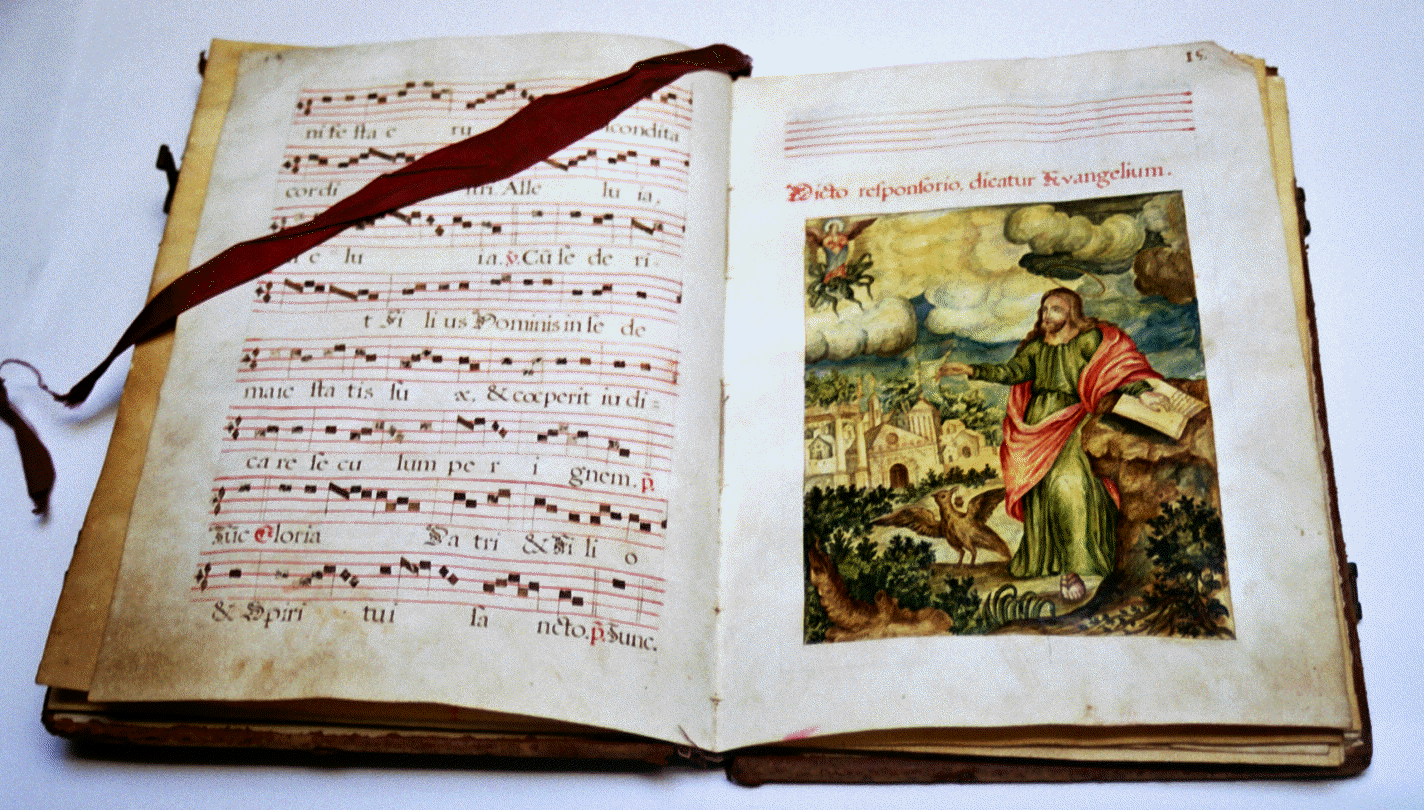 ni fe sta e ru condita
cordi ſtri. Alle lu ia,
e lu ia. ℣. Cũ ſe de ri-
t Fi li us Hominis in ſe de
maie ſta tis ſu æ, & cœperit iu di =
ca re ſe cu lum pe r i gnem. p̃.
Tũc Gloria Pa tri & Fi li o
& Spiri tui ſa ncto. p̃. Tunc.
15
Dicto reſponſorio, dicatur Evangelium.